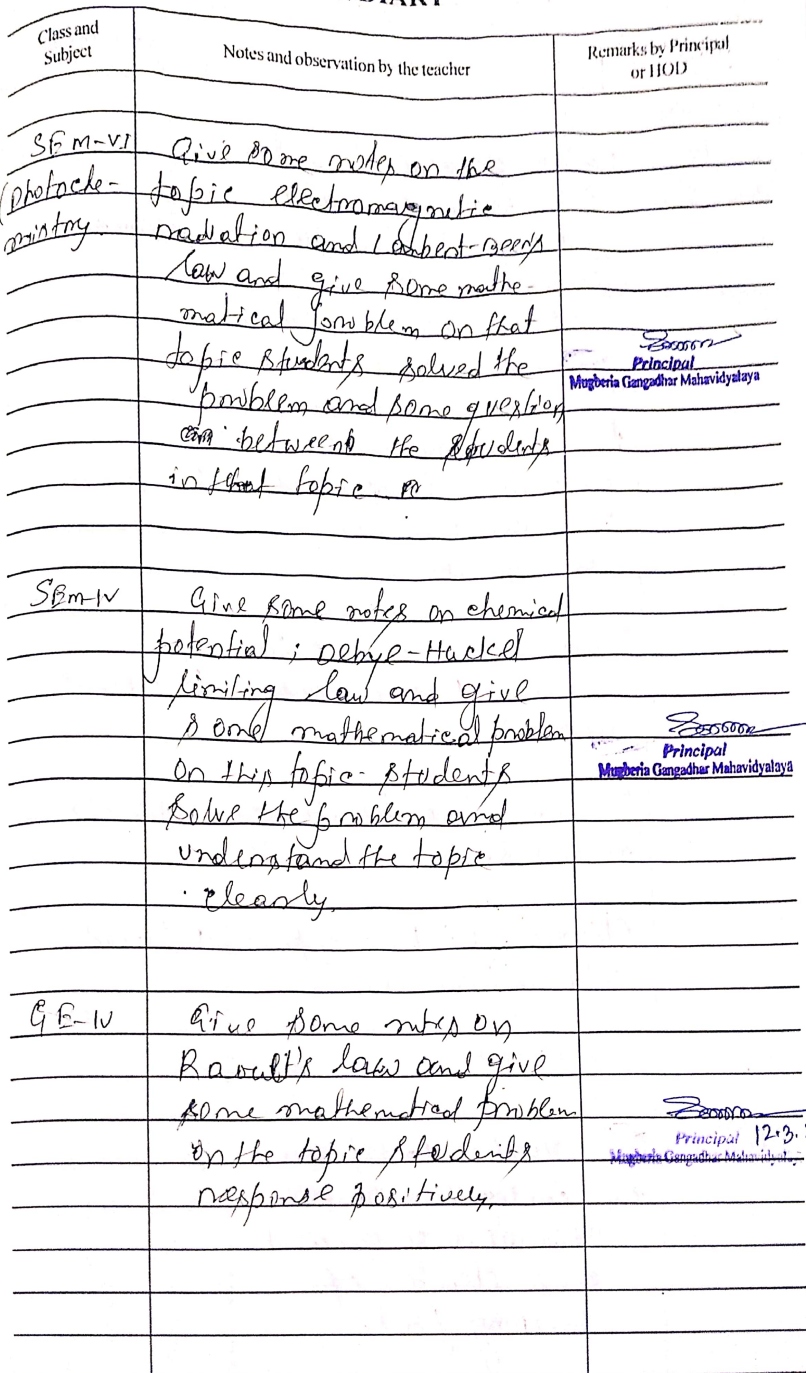 Class and
Subject
Notes and observation by the teacher
Remarks by Principal
or HOD
SEM-VI
(Photoche-
mistry.
Give some notes on the
topic electromagnetic
radiation and Lambert-Beer's
law and give some mathe-
matical problem on that
topic students solved the
problem and some question
between the students
in that topic
Principal
Mugberia Gangadhar Mahavidyalaya
SEM-IV
Give some notes on chemical
potential ; Debye-Huckel
limiting law and give
some mathematical problem
on this topic- students
solve the problem and
understand the topic
clearly.
Principal
Mugberia Gangadhar Mahavidyalaya
GE-IV
Give some notes on
Raoult's law and give
some mathematical problem
on the topic students
response positively.
Principal 12.3.
Mugberia Gangadhar